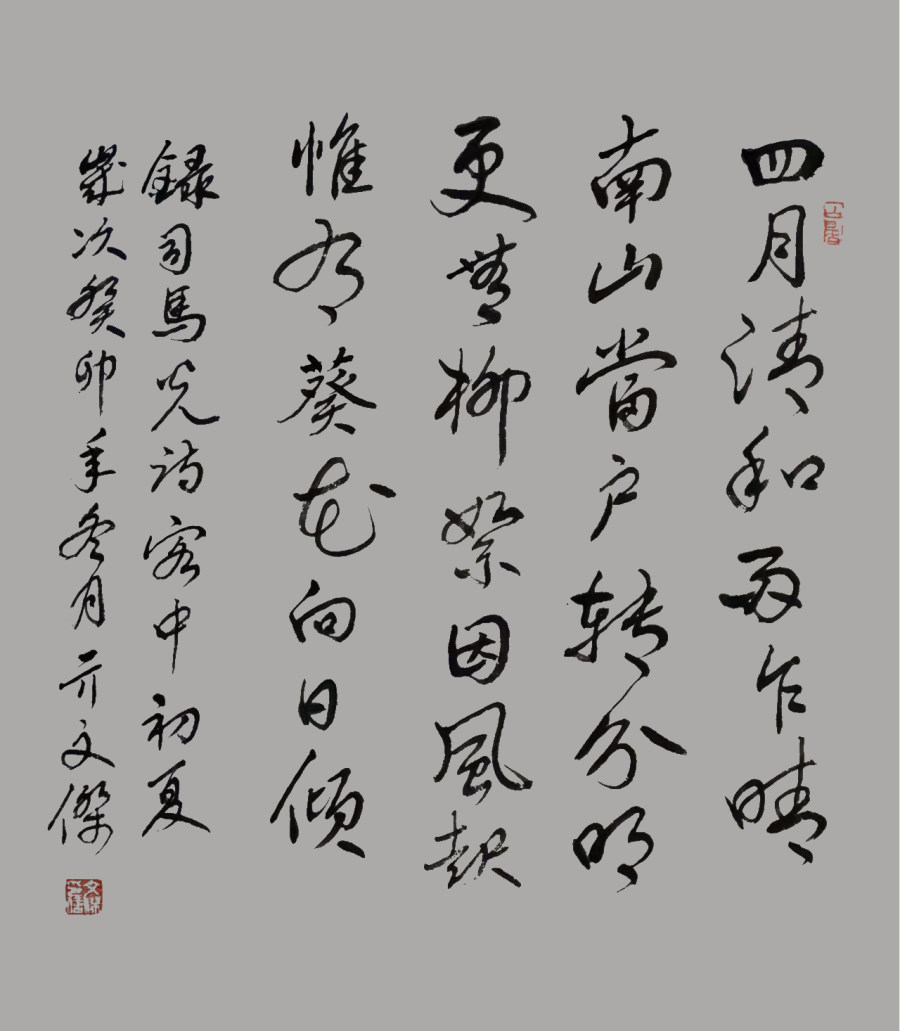 四月清和雨乍晴
南山當户转分明
更無柳絮因風起
惟有葵花向日傾
録司馬光诗客中初夏
歲次癸卯年冬月亓文傑